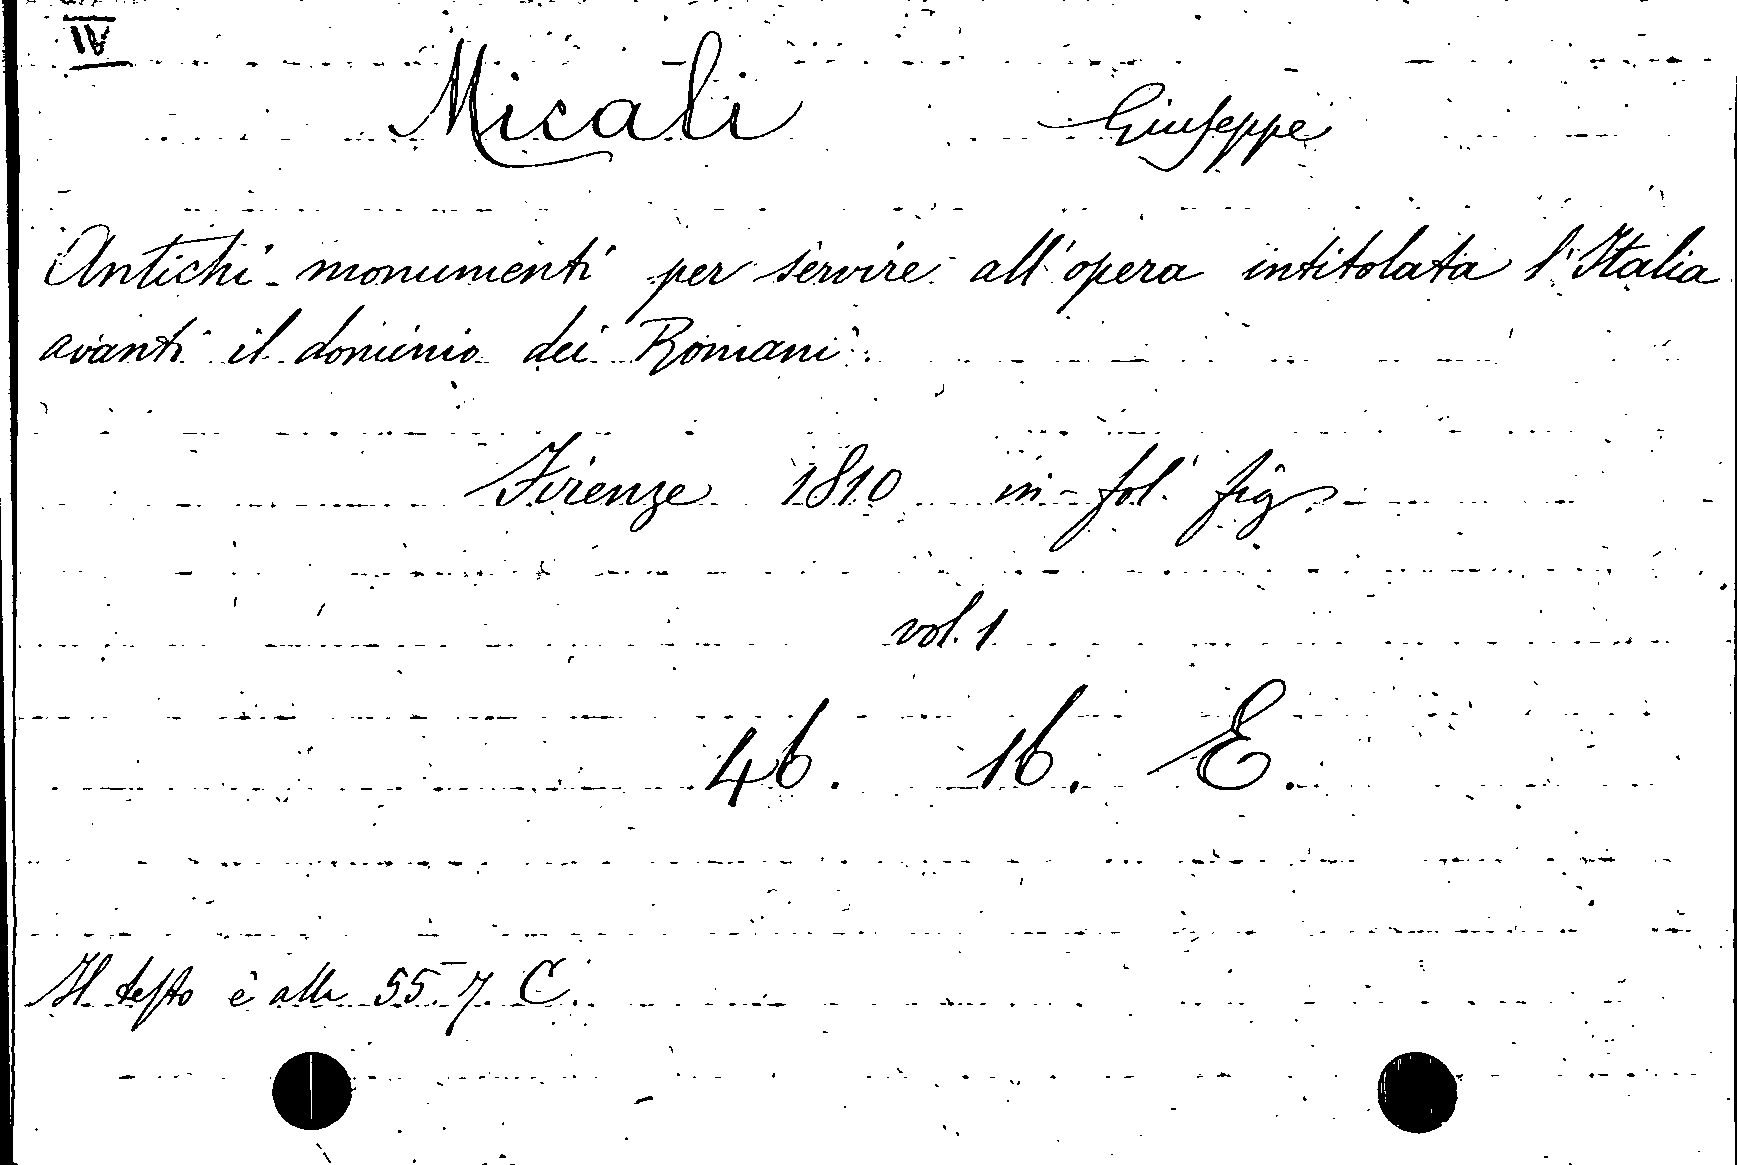 IV
Micali Giuseppe
Antichi monumenti per servire all'opera intitolata l'Italia
avanti il dominio dei Romani.
Firenze 1810 in-fol. fig.
vol. 1
46. 16. E.
Il testo è alla 55. 7. C.